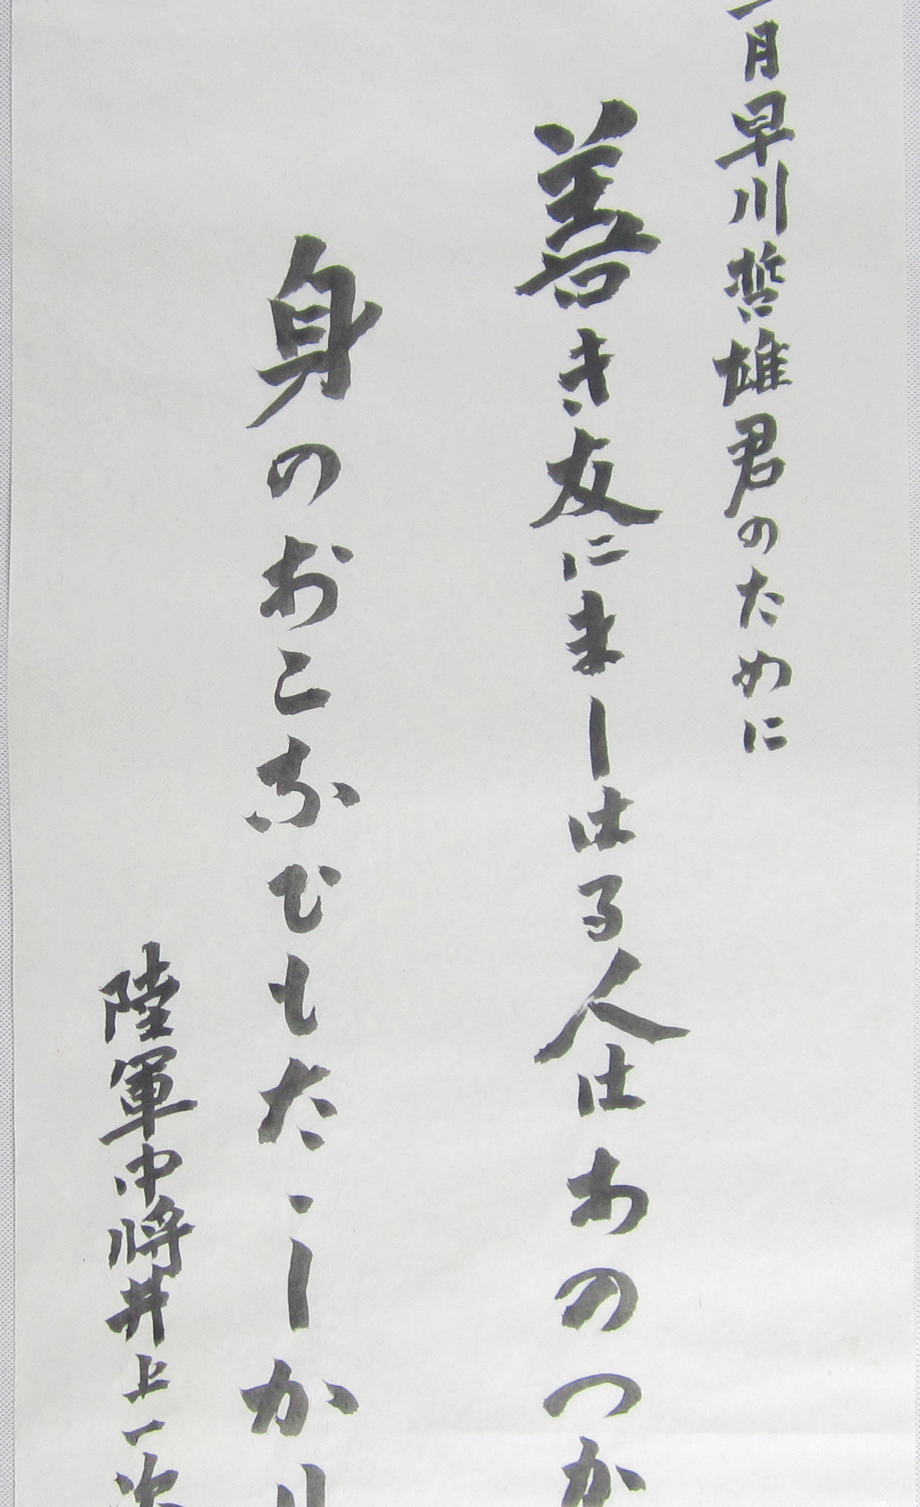 月早川哲雄君のために
善き友にましはる人はおのつか
身のおこなひもたゝしか
陸軍中将井上一次